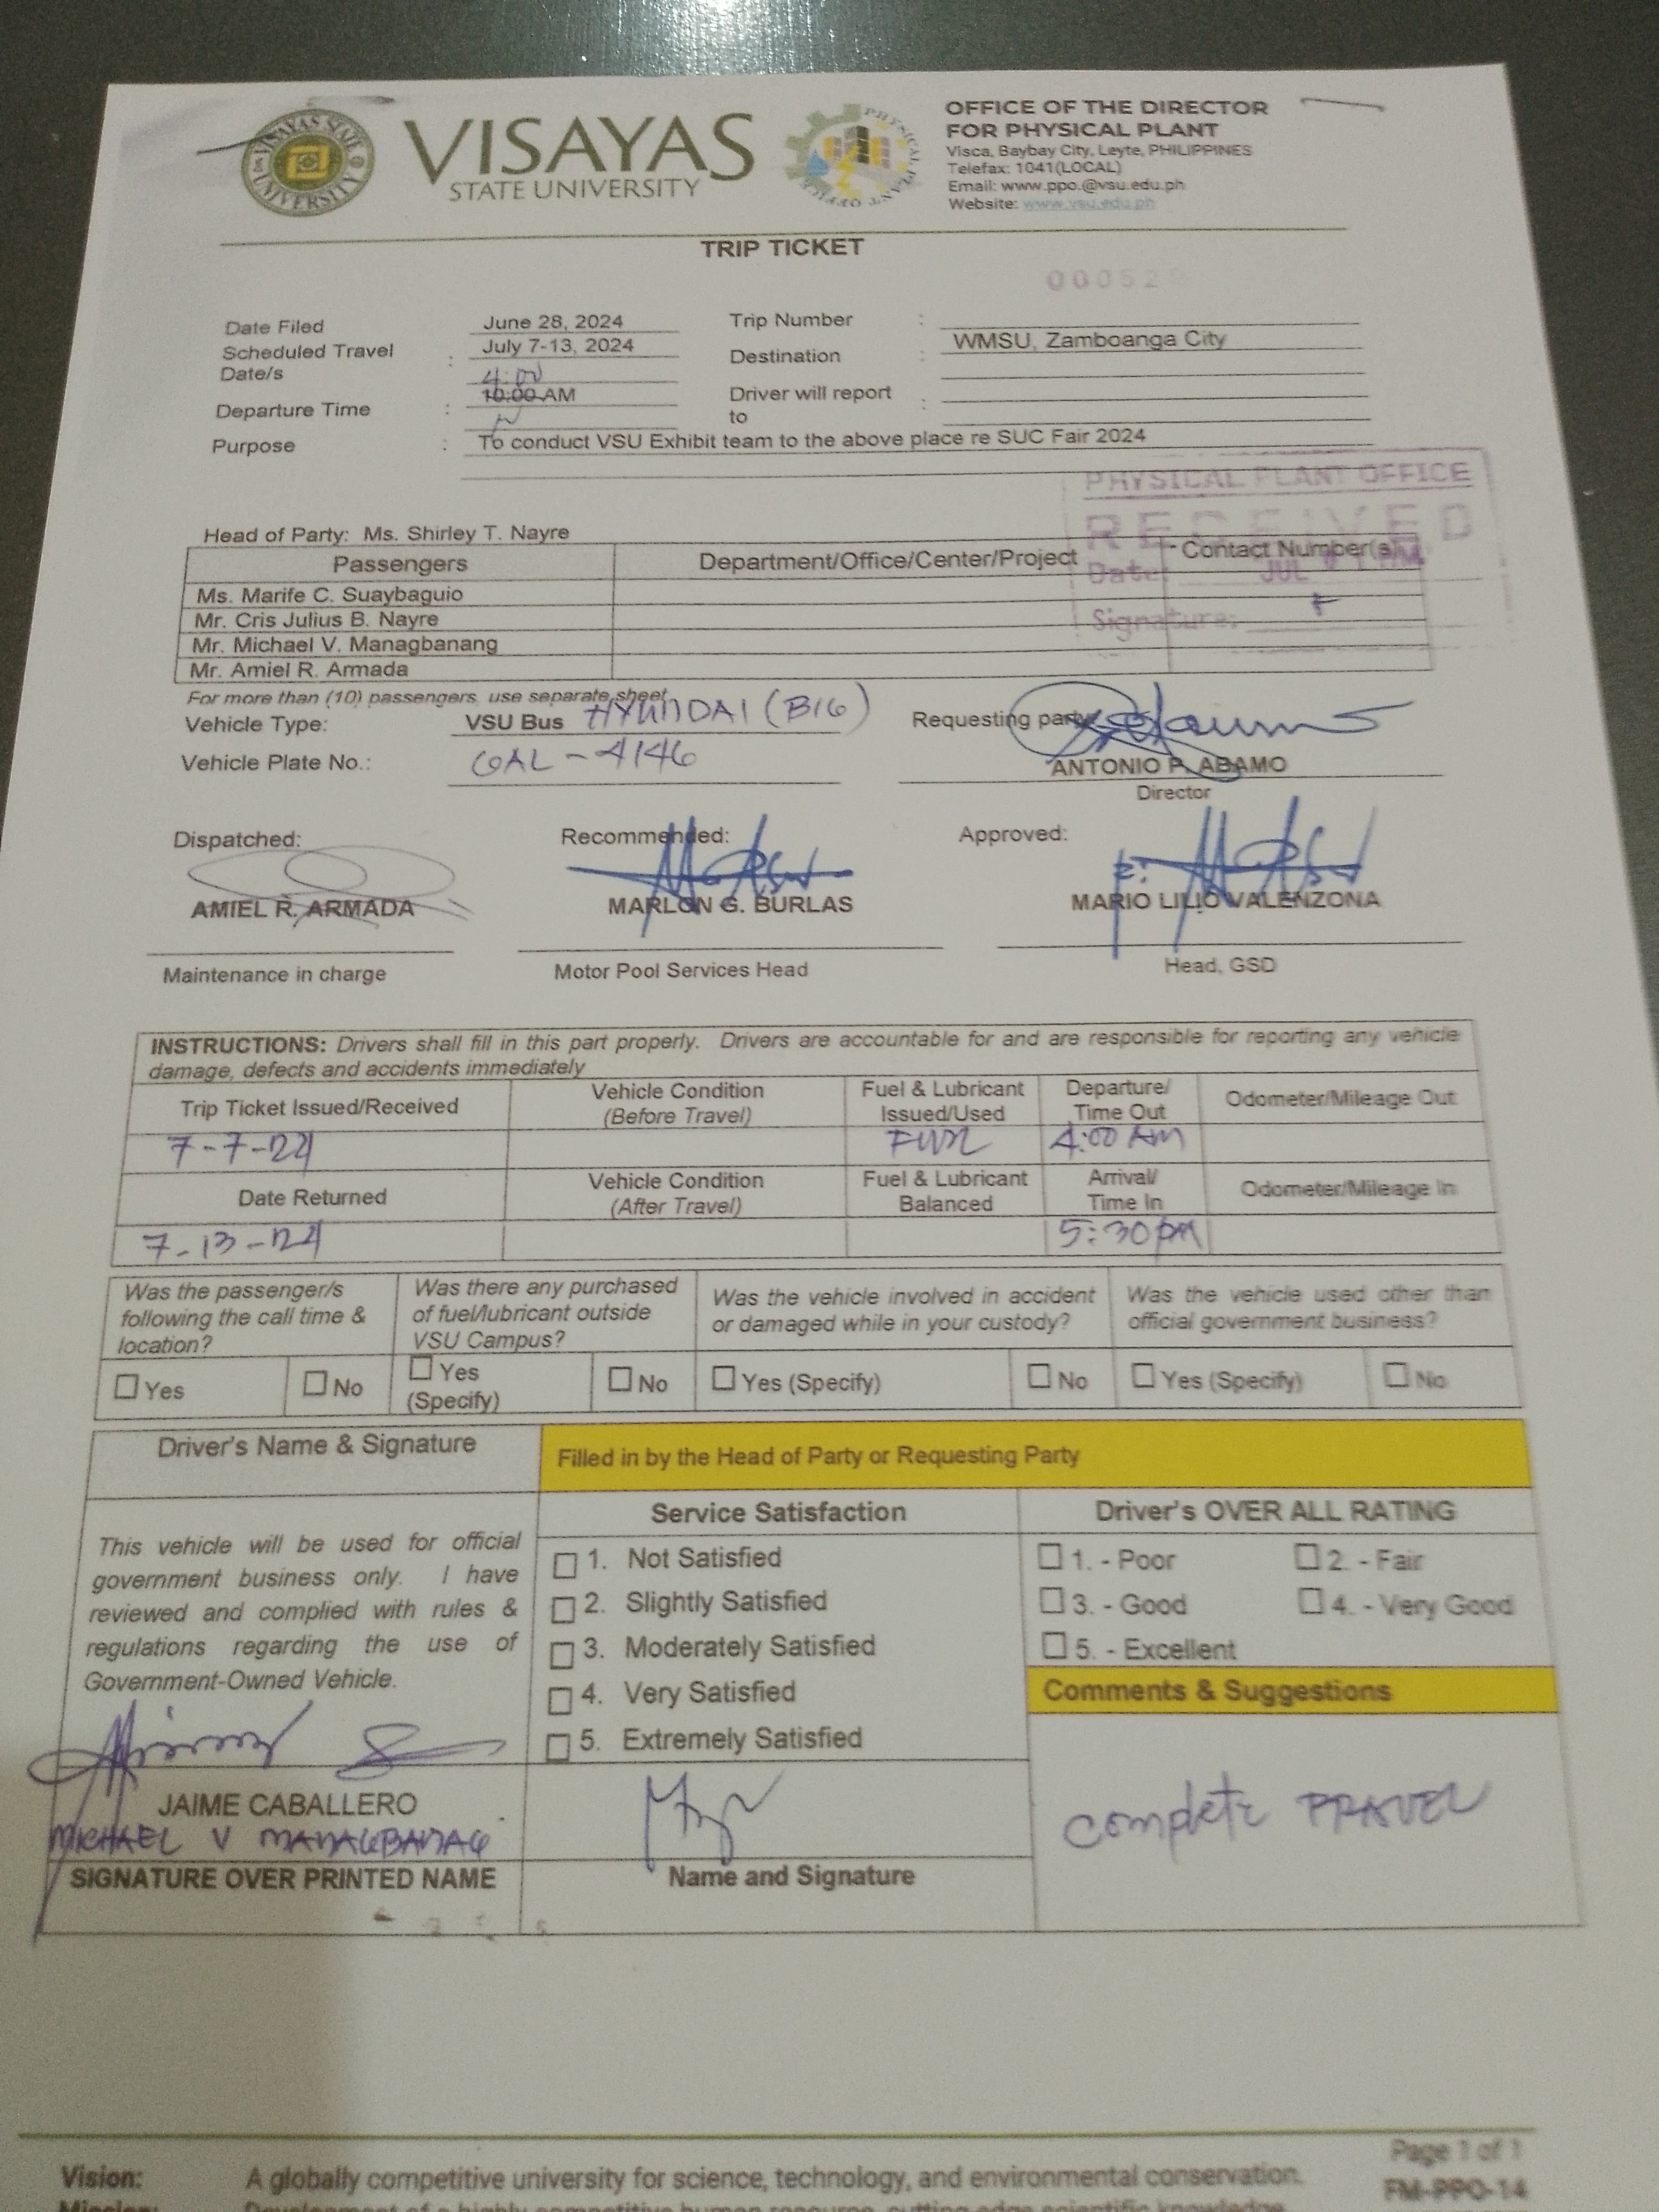 VISAYAS STATE UNIVERSITY
VISAYAS
STATE UNIVERSITY
OFFICE OF THE DIRECTOR
FOR PHYSICAL PLANT
Visca, Baybay City, Leyte, PHILIPPINES
Telefax: 1041(LOCAL)
Email: www.ppo.@vsu.edu.ph
Website: www.vsu.edu.ph
TRIP TICKET
Date Filed June 28, 2024 Trip Number :
Scheduled Travel Date/s : July 7-13, 2024 Destination : WMSU, Zamboanga City
4:00
Departure Time : 10:00 AM Driver will report to :
Purpose : To conduct VSU Exhibit team to the above place re SUC Fair 2024
PHYSICAL PLANT OFFICE
RECEIVED
Date: JUL
Signature:
Head of Party: Ms. Shirley T. Nayre
Passengers Department/Office/Center/Project Contact Number(s)
Ms. Marife C. Suaybaguio
Mr. Cris Julius B. Nayre
Mr. Michael V. Managbanang
Mr. Amiel R. Armada
For more than (10) passengers, use separate sheet
Vehicle Type: VSU Bus HYUNDAI (BIG) Requesting party
Vehicle Plate No.: GAL-4146 ANTONIO P. ABAMO
Director
Dispatched: Recommended: Approved:
AMIEL R. ARMADA MARLON G. BURLAS MARIO LILIO VALENZONA
Maintenance in charge Motor Pool Services Head Head, GSD
INSTRUCTIONS: Drivers shall fill in this part properly. Drivers are accountable for and are responsible for reporting any vehicle
damage, defects and accidents immediately
Trip Ticket Issued/Received Vehicle Condition (Before Travel) Fuel & Lubricant Issued/Used Departure/ Time Out Odometer/Mileage Out
7-7-24 4:00 AM
Date Returned Vehicle Condition (After Travel) Fuel & Lubricant Balanced Arrival/ Time In Odometer/Mileage In
7-13-24 5:30 PM
Was the passenger/s following the call time & location? Was there any purchased of fuel/lubricant outside VSU Campus? Was the vehicle involved in accident or damaged while in your custody? Was the vehicle used other than official government business?
Yes No Yes (Specify) No Yes (Specify) No Yes (Specify) No
Driver's Name & Signature Filled in by the Head of Party or Requesting Party
Service Satisfaction Driver's OVER ALL RATING
This vehicle will be used for official
government business only. I have
reviewed and complied with rules &
regulations regarding the use of
Government-Owned Vehicle.
1. Not Satisfied
2. Slightly Satisfied
3. Moderately Satisfied
4. Very Satisfied
5. Extremely Satisfied
1. - Poor 2. - Fair
3. - Good 4. - Very Good
5. - Excellent
Comments & Suggestions
JAIME CABALLERO
MICHAEL V MANAGBANAG
SIGNATURE OVER PRINTED NAME
Name and Signature
Complete TRAVEL
Page 1 of 1
Vision: A globally competitive university for science, technology, and environmental conservation.
FM-PPO-14